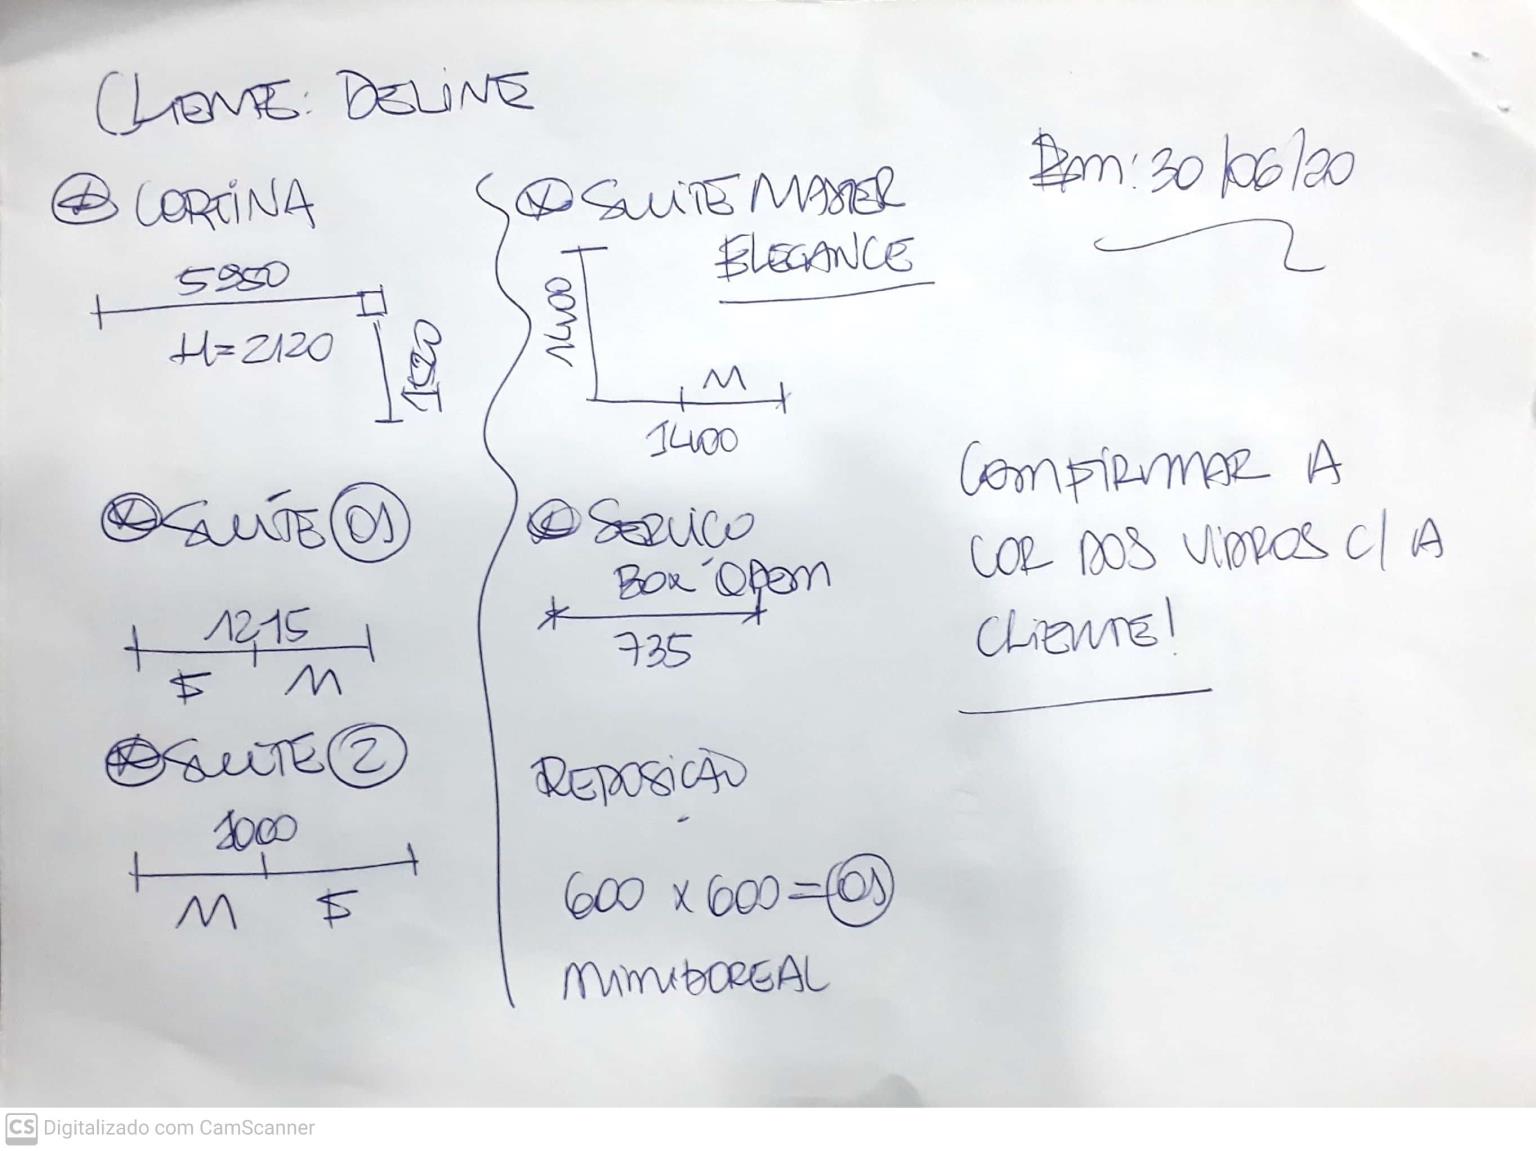 CLIENTE: DELINE
CORTINA
5980
H=2120
1520
SUÍTE 01
1215
F M
SUITE 2
1000
M F
SUITE MASTER
ELEGANCE
1400
M
1400
SERVICO
BOX OPEN
735
REPOSIÇÃO
600 x 600 = 01
MINIBOREAL
Em: 30/06/20
CONFIRMAR A
COR DOS VIDROS C/ A
CLIENTE!
CS Digitalizado com CamScanner